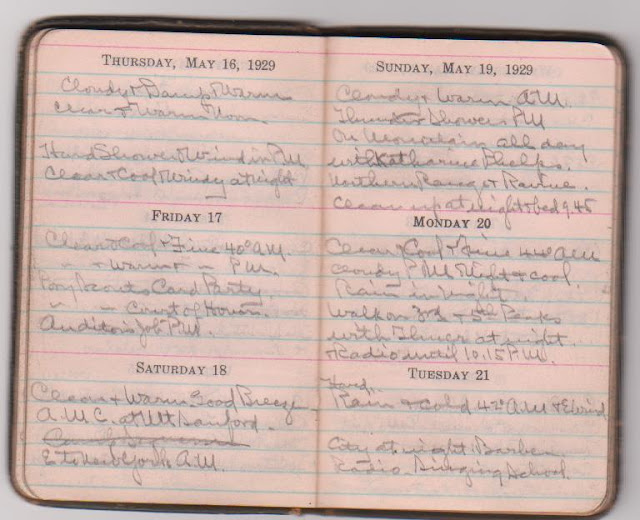 THURSDAY, MAY 16, 1929
Cloudy + Damp + Warm
Clear + Warm Noon
Hard Shower + Wind in P.M.
Clear + Cool + Windy at night
FRIDAY 17
Clear + Cool + Fine 40° A.M.
" + Warm + " P.M.
Boy Scouts Card Party.
" " Court of Honor.
Auditors Job P.M.
SATURDAY 18
Clear + Warm Good Breeze
A.M.C. at Mt Sanford.
E to New York A.M.
SUNDAY, MAY 19, 1929
Cloudy + Warm A.M.
Thunder Showers P.M.
On Mountain all day
with Katharine Phelps.
Northern Range + Ravine.
Clear up at night + bed 9.45
MONDAY 20
Clear + Cool + Fine 44° A.M.
Cloudy P.M. + cool.
Rain in night.
Walk on 3rd + 5th
with at night.
Radio until 10.15 P.M.
TUESDAY 21
Hard
Rain + Cold 42° A.M. + E Wind
City at night. Barber.
Radio Singing School.